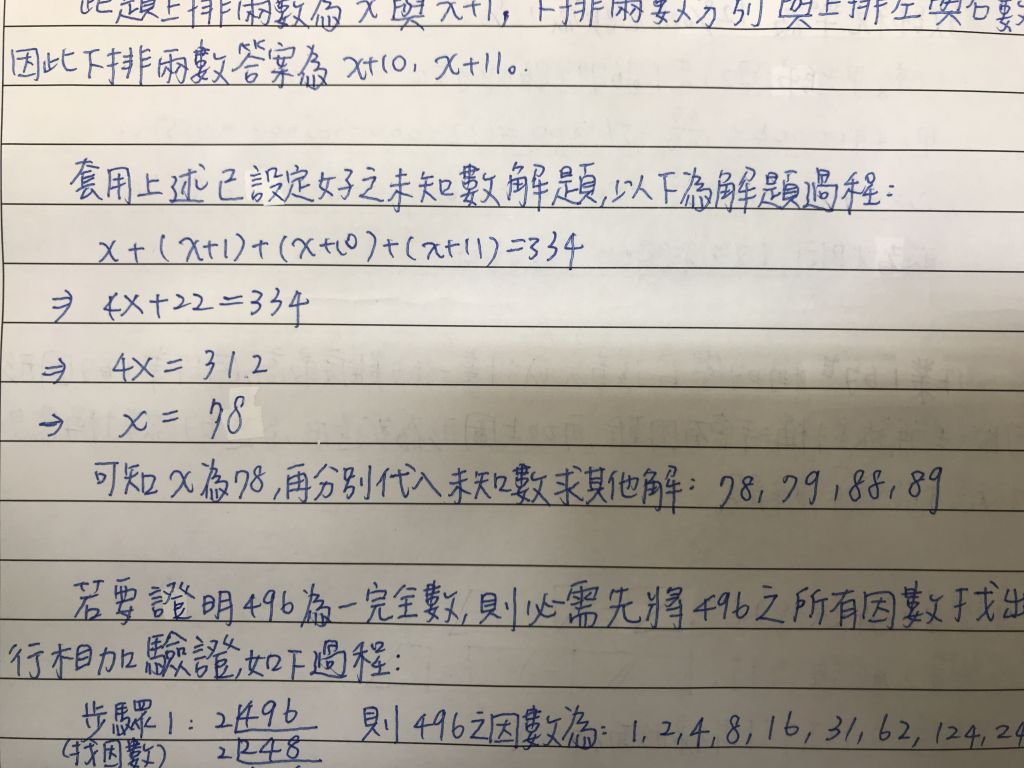 此題上排兩數為 x 與 x+1, 下排兩數分別與上排左與右數
因此下排兩數答案為 x+10, x+11。
套用上述已設定好之未知數解題,以下為解題過程:
x+(x+1)+(x+10)+(x+11)=334
⇒ 4x+22=334
⇒ 4x=31.2
→ x= 78
可知 x 為78,再分別代入未知數求其他解: 78, 79, 88, 89
若要證明496為一完全數,則必需先將496之所有因數找出
行相加驗證,如下過程:
步驟1: 2|496 則496之因數為: 1, 2, 4, 8, 16, 31, 62, 124, 24
(找因數) 2|248